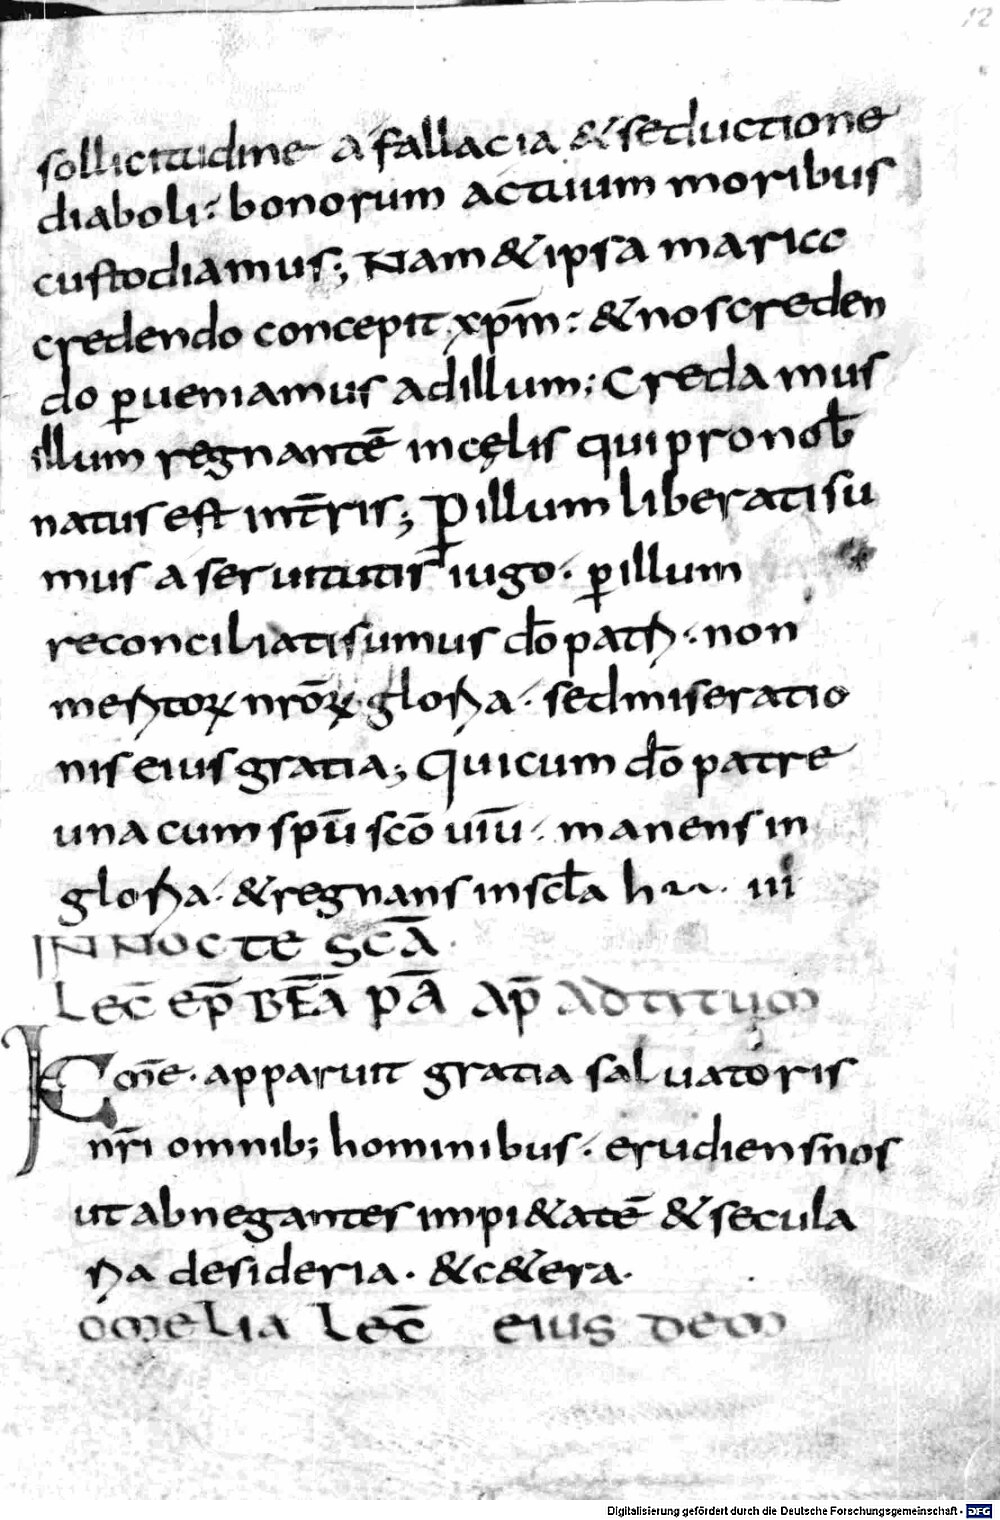 12
sollicitudine a fallacia & seductione
diaboli· bonorum actuum moribus
custodiamus; Nam & ipsa maria
credendo concepit xp̄m· & nos creden
do p̱ueniamus ad illum; Credamus
illum regnantē in cęlis qui pro nob̄
natus est in t̄ris; P̱ illum liberati su
mus a seruitutis iugo· p̱ illum
reconciliati sumus dō patri· non
meritoꝝ nr̄oꝝ gloria· sed miseratio
nis eius gratia; Qui cum dō patre
una cum sp̄u sc̄o uiu· manens in
gloria· & regnans in scl̄a
IN NOCTE SC̄A
Lec̄ ep̄ BĒA PĀ AP̄ AD TITUM
K̄m̄e· apparuit gratia saluatoris
nr̄i omnib; hominibus· erudiens nos
ut abnegantes impi&atē & secula
ria desideria· & c&era·
omelia Lec̄ eiusdem
Digitalisierung gefördert durch die Deutsche Forschungsgemeinschaft - DFG